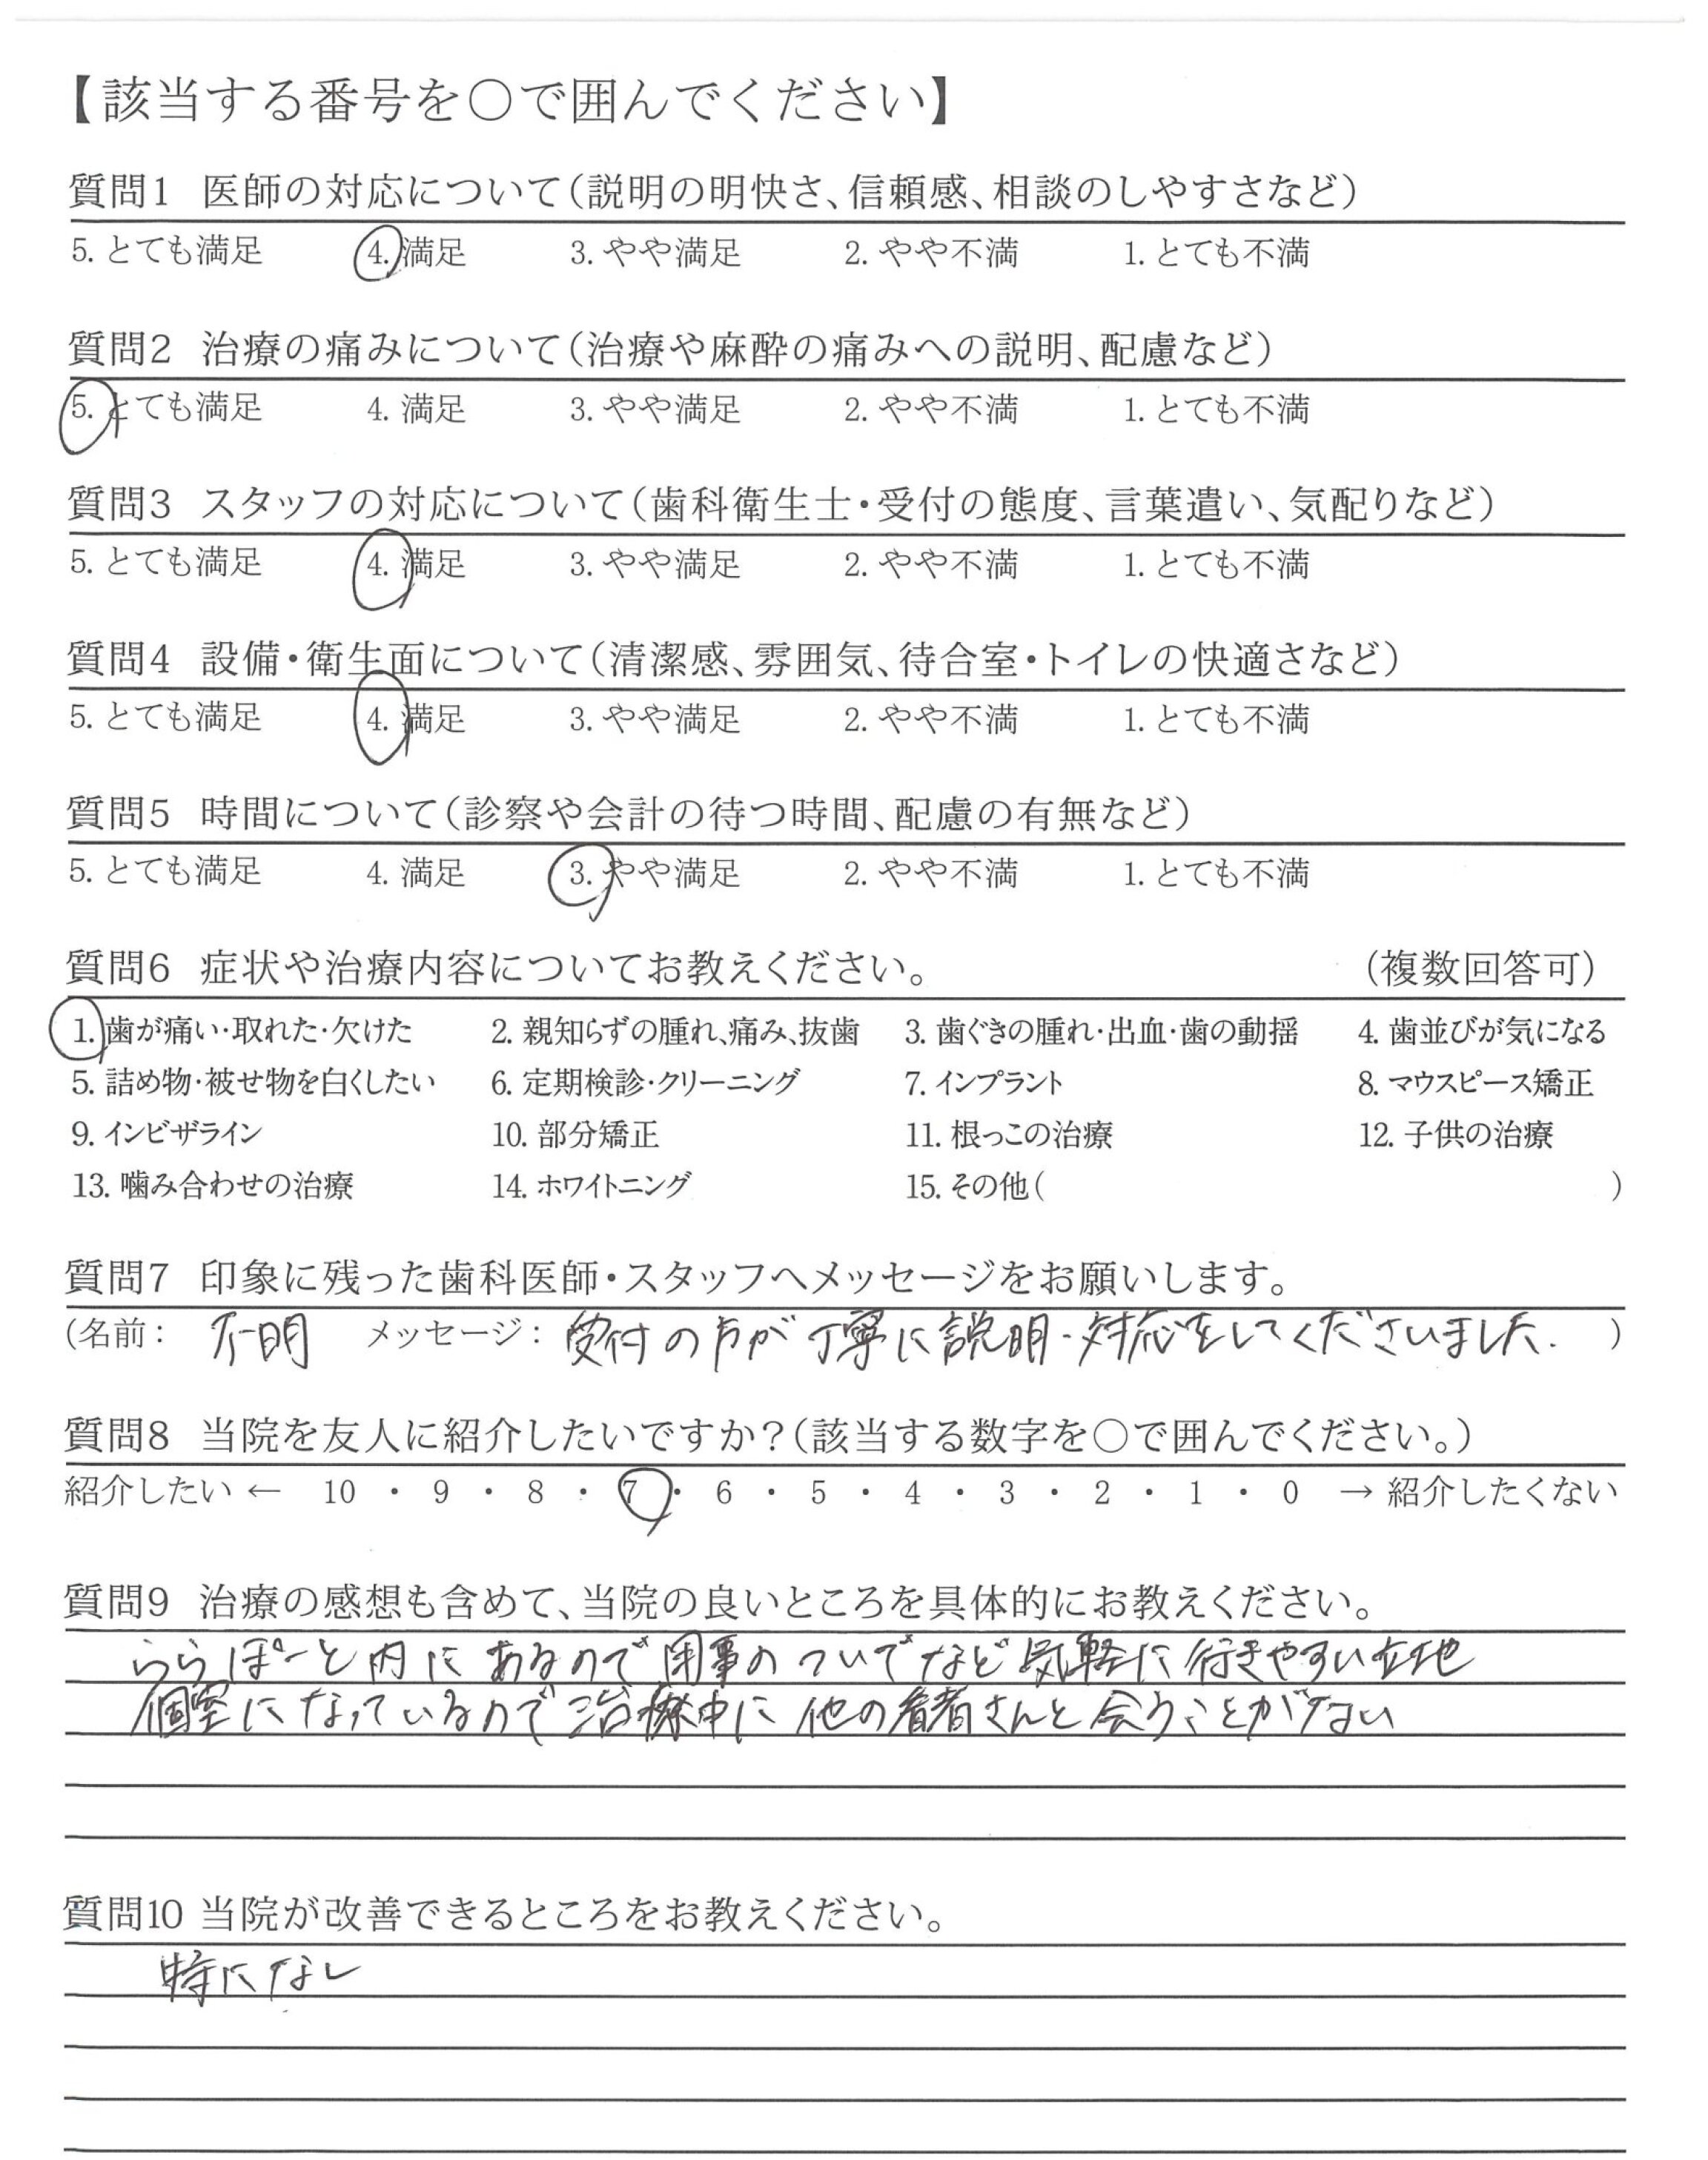 【該当する番号を〇で囲んでください】
質問1 医師の対応について(説明の明快さ、信頼感、相談のしやすさなど)
5. とても満足 4. 満足 3. やや満足 2. やや不満 1. とても不満
質問2 治療の痛みについて(治療や麻酔の痛みへの説明、配慮など)
5. とても満足 4. 満足 3. やや満足 2. やや不満 1. とても不満
質問3 スタッフの対応について(歯科衛生士・受付の態度、言葉遣い、気配りなど)
5. とても満足 4. 満足 3. やや満足 2. やや不満 1. とても不満
質問4 設備・衛生面について(清潔感、雰囲気、待合室・トイレの快適さなど)
5. とても満足 4. 満足 3. やや満足 2. やや不満 1. とても不満
質問5 時間について(診察や会計の待つ時間、配慮の有無など)
5. とても満足 4. 満足 3. やや満足 2. やや不満 1. とても不満
質問6 症状や治療内容についてお教えください。 (複数回答可)
1. 歯が痛い・取れた・欠けた 2. 親知らずの腫れ、痛み、抜歯 3. 歯ぐきの腫れ・出血・歯の動揺 4. 歯並びが気になる
5. 詰め物・被せ物を白くしたい 6. 定期検診・クリーニング 7. インプラント 8. マウスピース矯正
9. インビザライン 10. 部分矯正 11. 根っこの治療 12. 子供の治療
13. 噛み合わせの治療 14. ホワイトニング 15. その他( )
質問7 印象に残った歯科医師・スタッフへメッセージをお願いします。
(名前： 不明 メッセージ： 受付の方が丁寧に説明・対応をしてくださいました. )
質問8 当院を友人に紹介したいですか？(該当する数字を〇で囲んでください。)
紹介したい ← 10 ・ 9 ・ 8 ・ 7 ・ 6 ・ 5 ・ 4 ・ 3 ・ 2 ・ 1 ・ 0 → 紹介したくない
質問9 治療の感想も含めて、当院の良いところを具体的にお教えください。
ららぽーと内にあるので用事のついでなど気軽に行きやすい立地
個室になっているので治療中に他の患者さんと会うことがない
質問10 当院が改善できるところをお教えください。
特になし